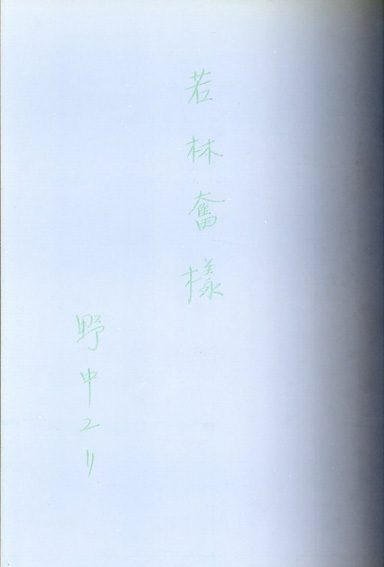 若林奮様
野中ユリ